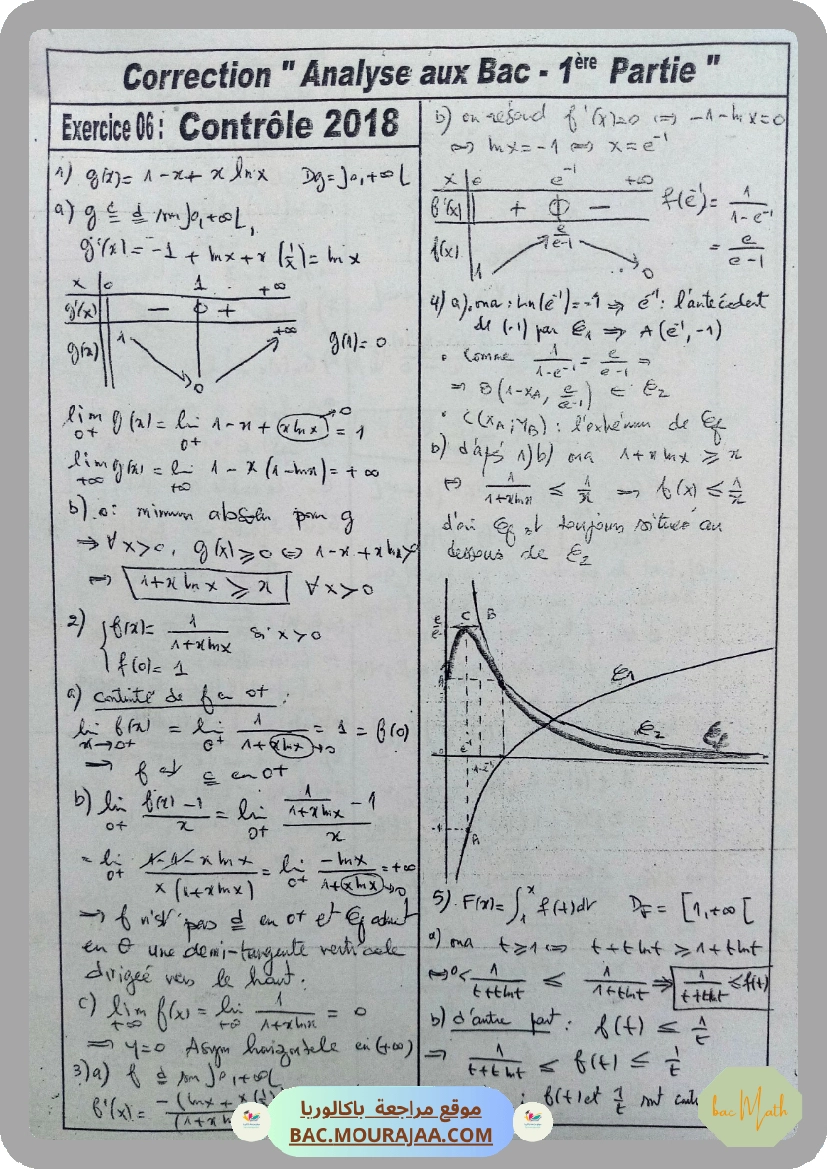 Correction " Analyse aux Bac - 1ère Partie "
Exercice 06 : Contrôle 2018
1) g(x) = 1 - x + x ln x    Dg = ]0, +∞[
a) g est d sur ]0, +∞[,
g'(x) = -1 + ln x + x (1/x) = ln x
x | 0    1    +∞
g'(x) | - 0 +
g(x) | 1    0    +∞
g(1) = 0
lim 0+ g(x) = lim 0+ 1 - x + (x ln x) → 0 = 1
lim +∞ g(x) = lim +∞ 1 - x (1 - ln x) = +∞
b) 0 : minimum absolu pour g
⇒ ∀ x > 0, g(x) ≥ 0 ⇔ 1 - x + x ln x ≥
⇔ 1 + x ln x ≥ x    ∀ x > 0
2) { f(x) = 1/(1 + x ln x) si x > 0
f(0) = 1
a) continuité de f en 0+ :
lim x→0+ f(x) = lim 0+ 1/(1 + (x ln x) → 0) = 1 = f(0)
⇒ f est c en 0+
b) lim 0+ (f(x) - 1)/x = lim 0+ (1/(1 + x ln x) - 1)/x
= lim 0+ (1 - 1 - x ln x)/(x (1 + x ln x)) = lim 0+ (-ln x)/(1 + (x ln x) → 0) = +∞
⇒ f n'est pas d en 0+ et Cf admet
en 0 une demi-tangente verticale
dirigée vers le haut.
c) lim +∞ f(x) = lim +∞ 1/(1 + x ln x) = 0
⇒ y = 0 Asym horizontale en (+∞)
3) a) f d sur ]0, +∞[
f'(x) = -(ln x + x
b) on résoud f'(x) = 0 ⇔ -1 - ln x = 0
⇔ ln x = -1 ⇔ x = e⁻¹
x | 0    e⁻¹    +∞
f'(x) | + 0 -
f(x) | 1    e/(e-1)    0
f(e⁻¹) = 1/(1 - e⁻¹)
= e/(e - 1)
4) a) . ona : ln(e⁻¹) = -1 ⇒ e⁻¹ : l'antécédent
de (-1) par C1 ⇒ A(e⁻¹, -1)
• Comme 1/(1 - e⁻¹) = e/(e - 1) ⇒
⇒ B(1 - xA, e/(e-1)) ∈ C2
• C(xA ; yB) : l'extrémum de Cf
b) d'après 1) b) ona 1 + x ln x ≥ x
⇔ 1/(1 + x ln x) ≤ 1/x ⇒ f(x) ≤ 1/x
d'où Cf est toujours située au
dessous de C2
C B
C1
C2 Cf
0 e⁻¹
1
-1 A
5) F(x) = ∫₁ˣ f(t) dt    DF = [1, +∞[
a) ona t ≥ 1 ⇔ t + t ln t ≥ 1 + t ln t
⇔ 0 < 1/(t + t ln t) ≤ 1/(1 + t ln t) ⇒ 1/(t + t ln t) ≤ f(t)
b) d'autre part : f(t) ≤ 1/t
⇒ 1/(t + t ln t) ≤ f(t) ≤ 1/t
: f(t) et 1/t sont
موقع مراجعة باكالوريا
BAC.MOURAJAA.COM
bac Math